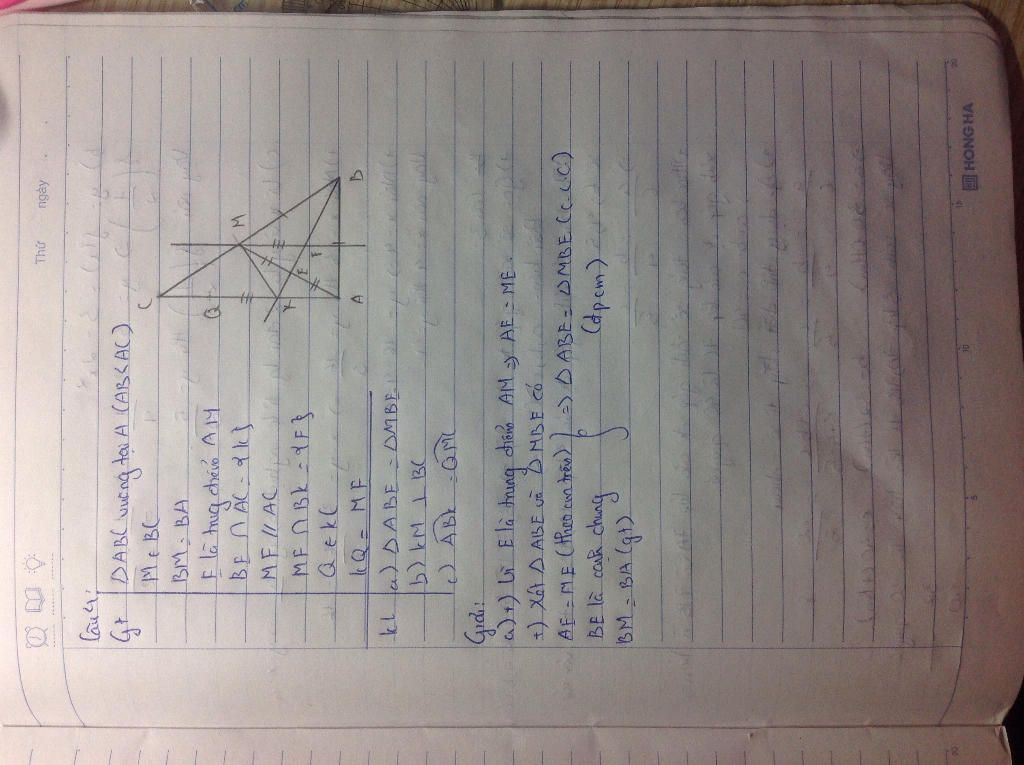 Thứ ngày
Câu 4:
Gt ΔABC vuông tại A (AB<AC)
M ∈ BC
BM = BA
E là trung điểm AM
BE ∩ AC = {k}
MF // AC
MF ∩ Bk = {F}
Q ∈ kC
kQ = MF
kl a) ΔABE = ΔMBE
b) kM ⊥ BC
c) ABk = QMC
C
Q
M
K
E
F
A
B
Giải:
a) +) Vì E là trung điểm AM => AE = ME.
+) Xét ΔABE và ΔMBE có
AE = ME (theo cm trên)
BE là cạnh chung
BM = BA (gt)
=> ΔABE = ΔMBE (c.c.c)
(đpcm)
HONG HA
5
10
15
20